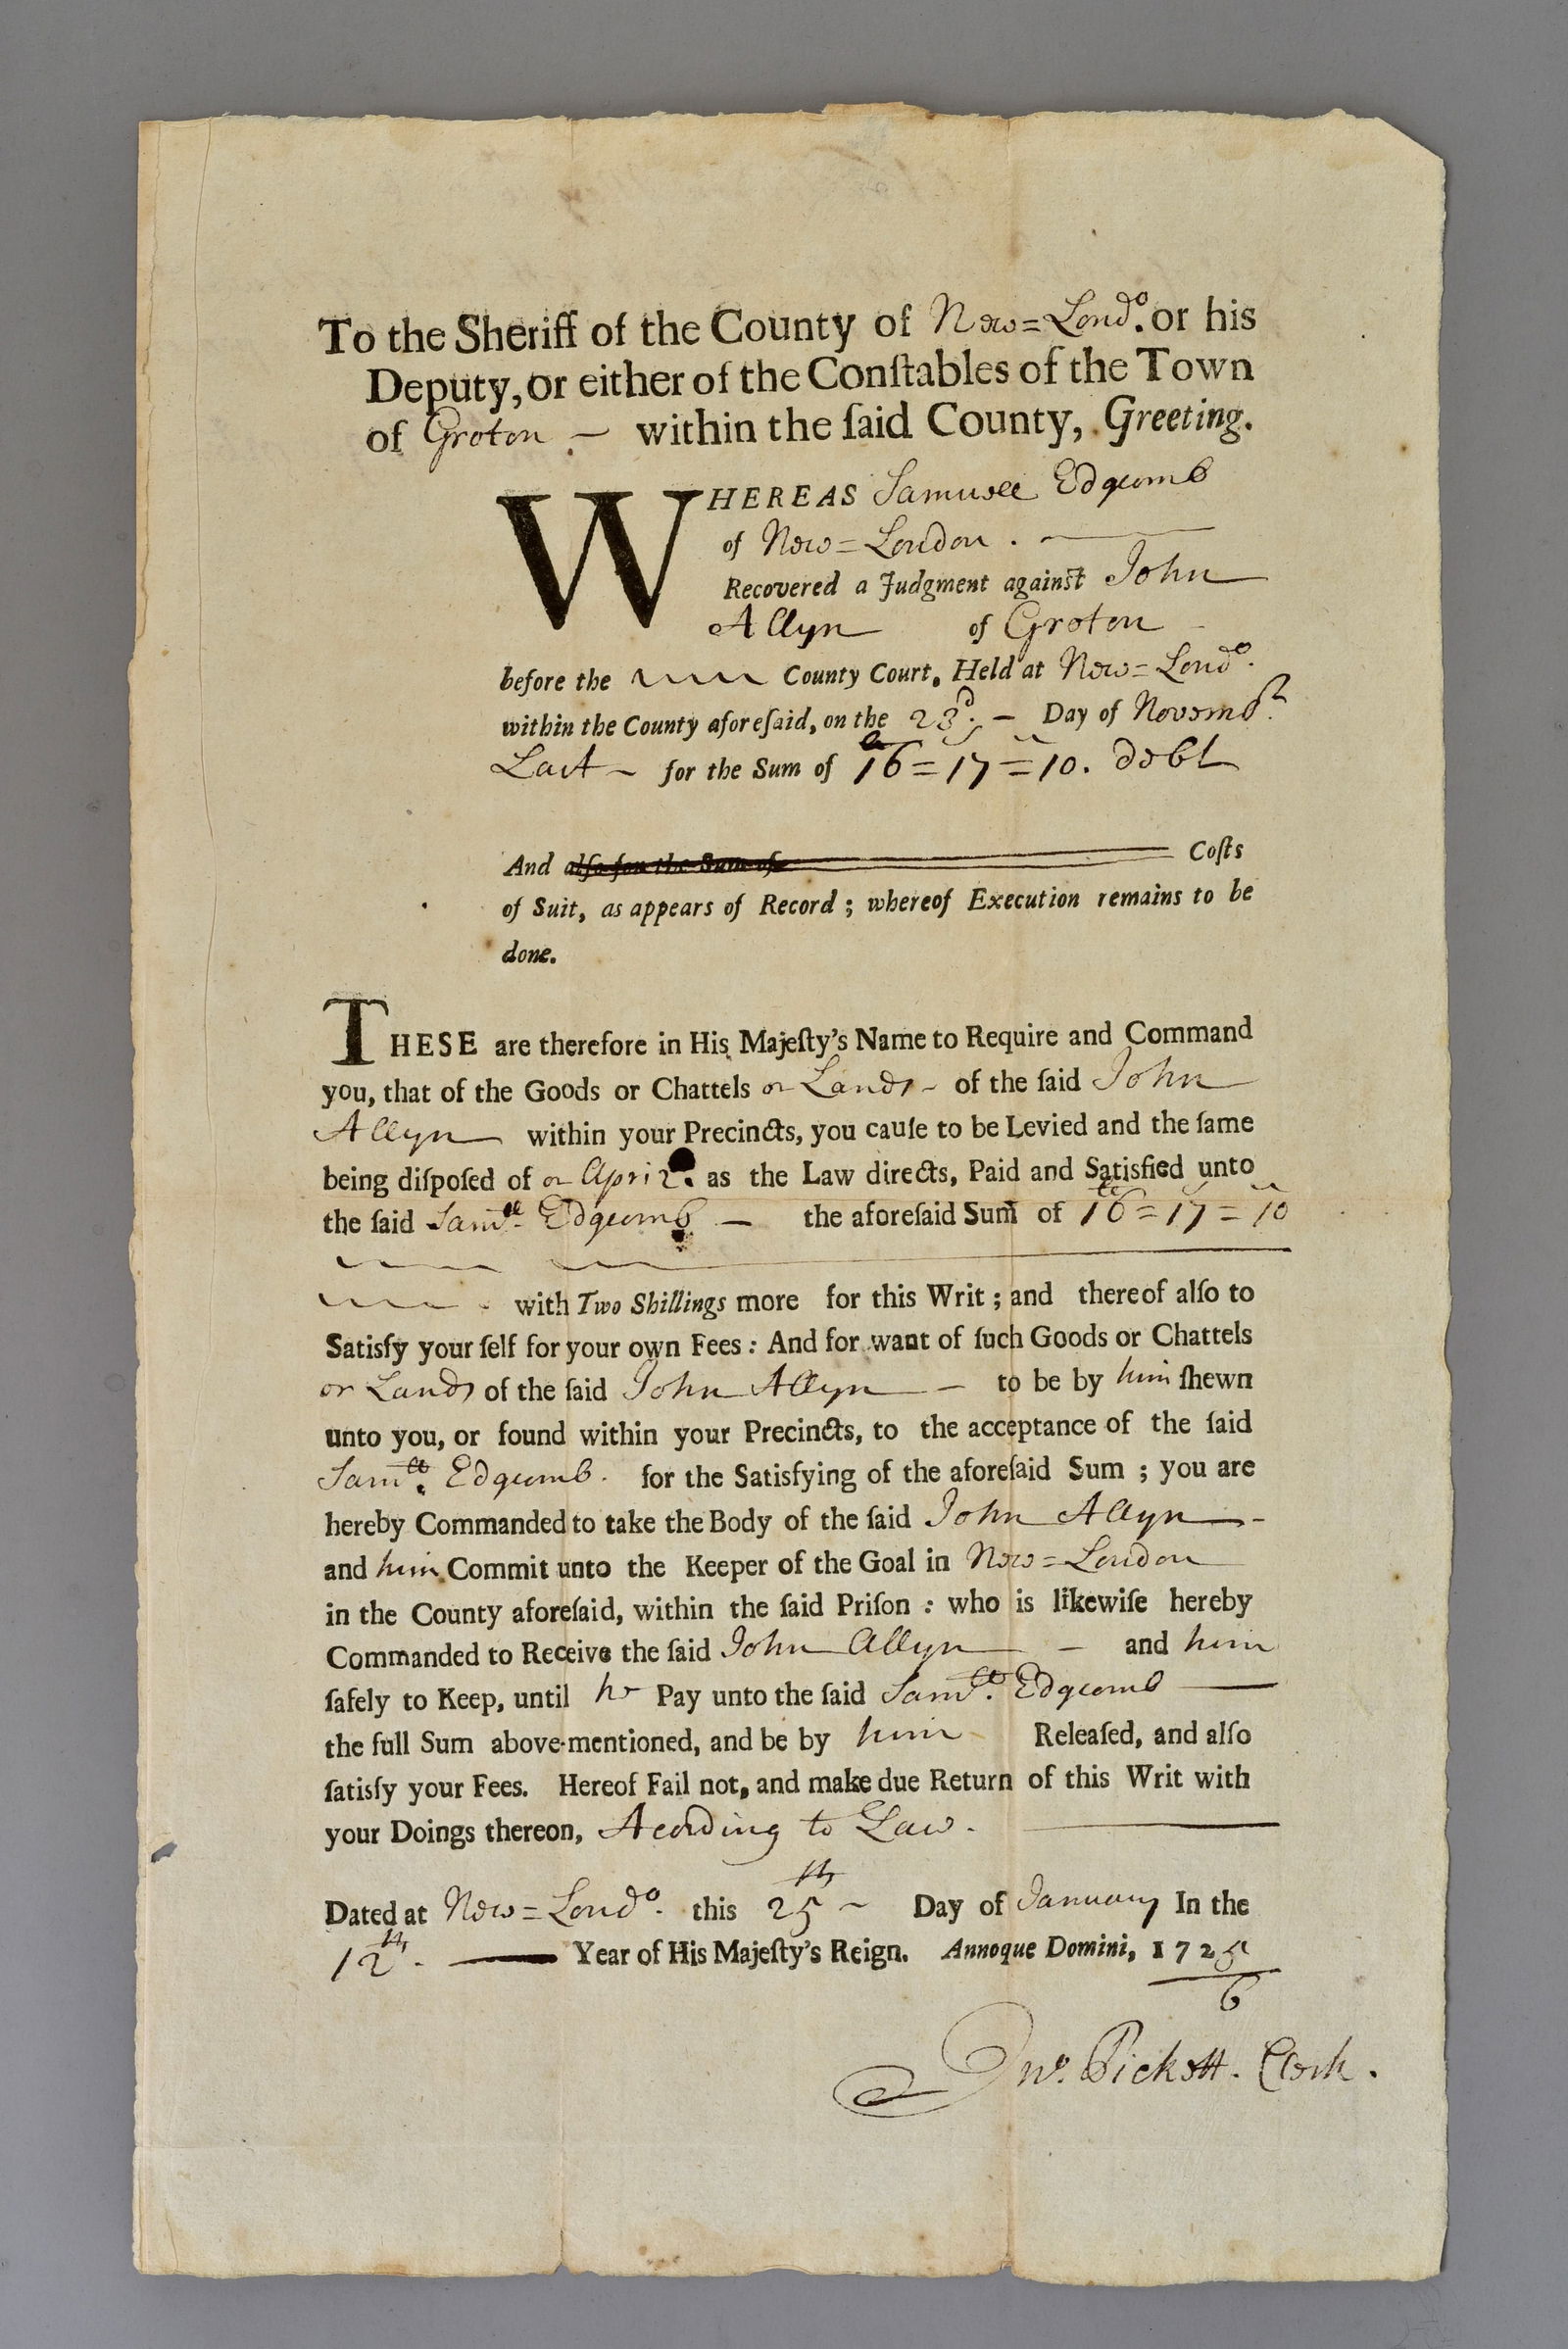 To the Sheriff of the County of New=Lond⁰. or his
Deputy, or either of the Conſtables of the Town
of Groton — within the ſaid County, Greeting.
WHEREAS Samuell Edgcomb
of New=London . —
Recovered a Judgment against John
Allyn of Groton
before the County Court, Held at New=Lond⁰.
within the County aforeſaid, on the 23ᵈ. — Day of Novembʳ.
Last ~ for the Sum of 16=17=10. debt
And alſo for the Sum of Coſts
of Suit, as appears of Record ; whereof Execution remains to be
done.
THESE are therefore in His Majeſty's Name to Require and Command
you, that of the Goods or Chattels or Lands – of the ſaid John
Allyn within your Precincts, you cauſe to be Levied and the ſame
being diſpoſed of or as the Law directs, Paid and Satisfied unto
the ſaid Samˡˡ. Edgcomb — the aforeſaid Sum of 16=17=10
with Two Shillings more for this Writ ; and thereof alſo to
Satisfy your ſelf for your own Fees : And for want of ſuch Goods or Chattels
or Lands of the ſaid John Allyn — to be by him ſhewn
unto you, or found within your Precincts, to the acceptance of the ſaid
Samˡˡ. Edgcomb. for the Satisfying of the aforeſaid Sum ; you are
hereby Commanded to take the Body of the ſaid John Allyn –
and him Commit unto the Keeper of the Goal in New=London
in the County aforeſaid, within the ſaid Priſon : who is likewiſe hereby
Commanded to Receive the ſaid John Allyn — and him
ſafely to Keep, until he Pay unto the ſaid Samˡˡ. Edgcomb —
the full Sum above-mentioned, and be by him Releaſed, and alſo
ſatisfy your Fees. Hereof Fail not, and make due Return of this Writ with
your Doings thereon, Acording to Law.
Dated at New=Lond⁰. this 25ᵗʰ ~ Day of January In the
12ᵗʰ. — Year of His Majeſty's Reign. Annoque Domini, 1725
6
Jn⁰. Pickett. Clerk.